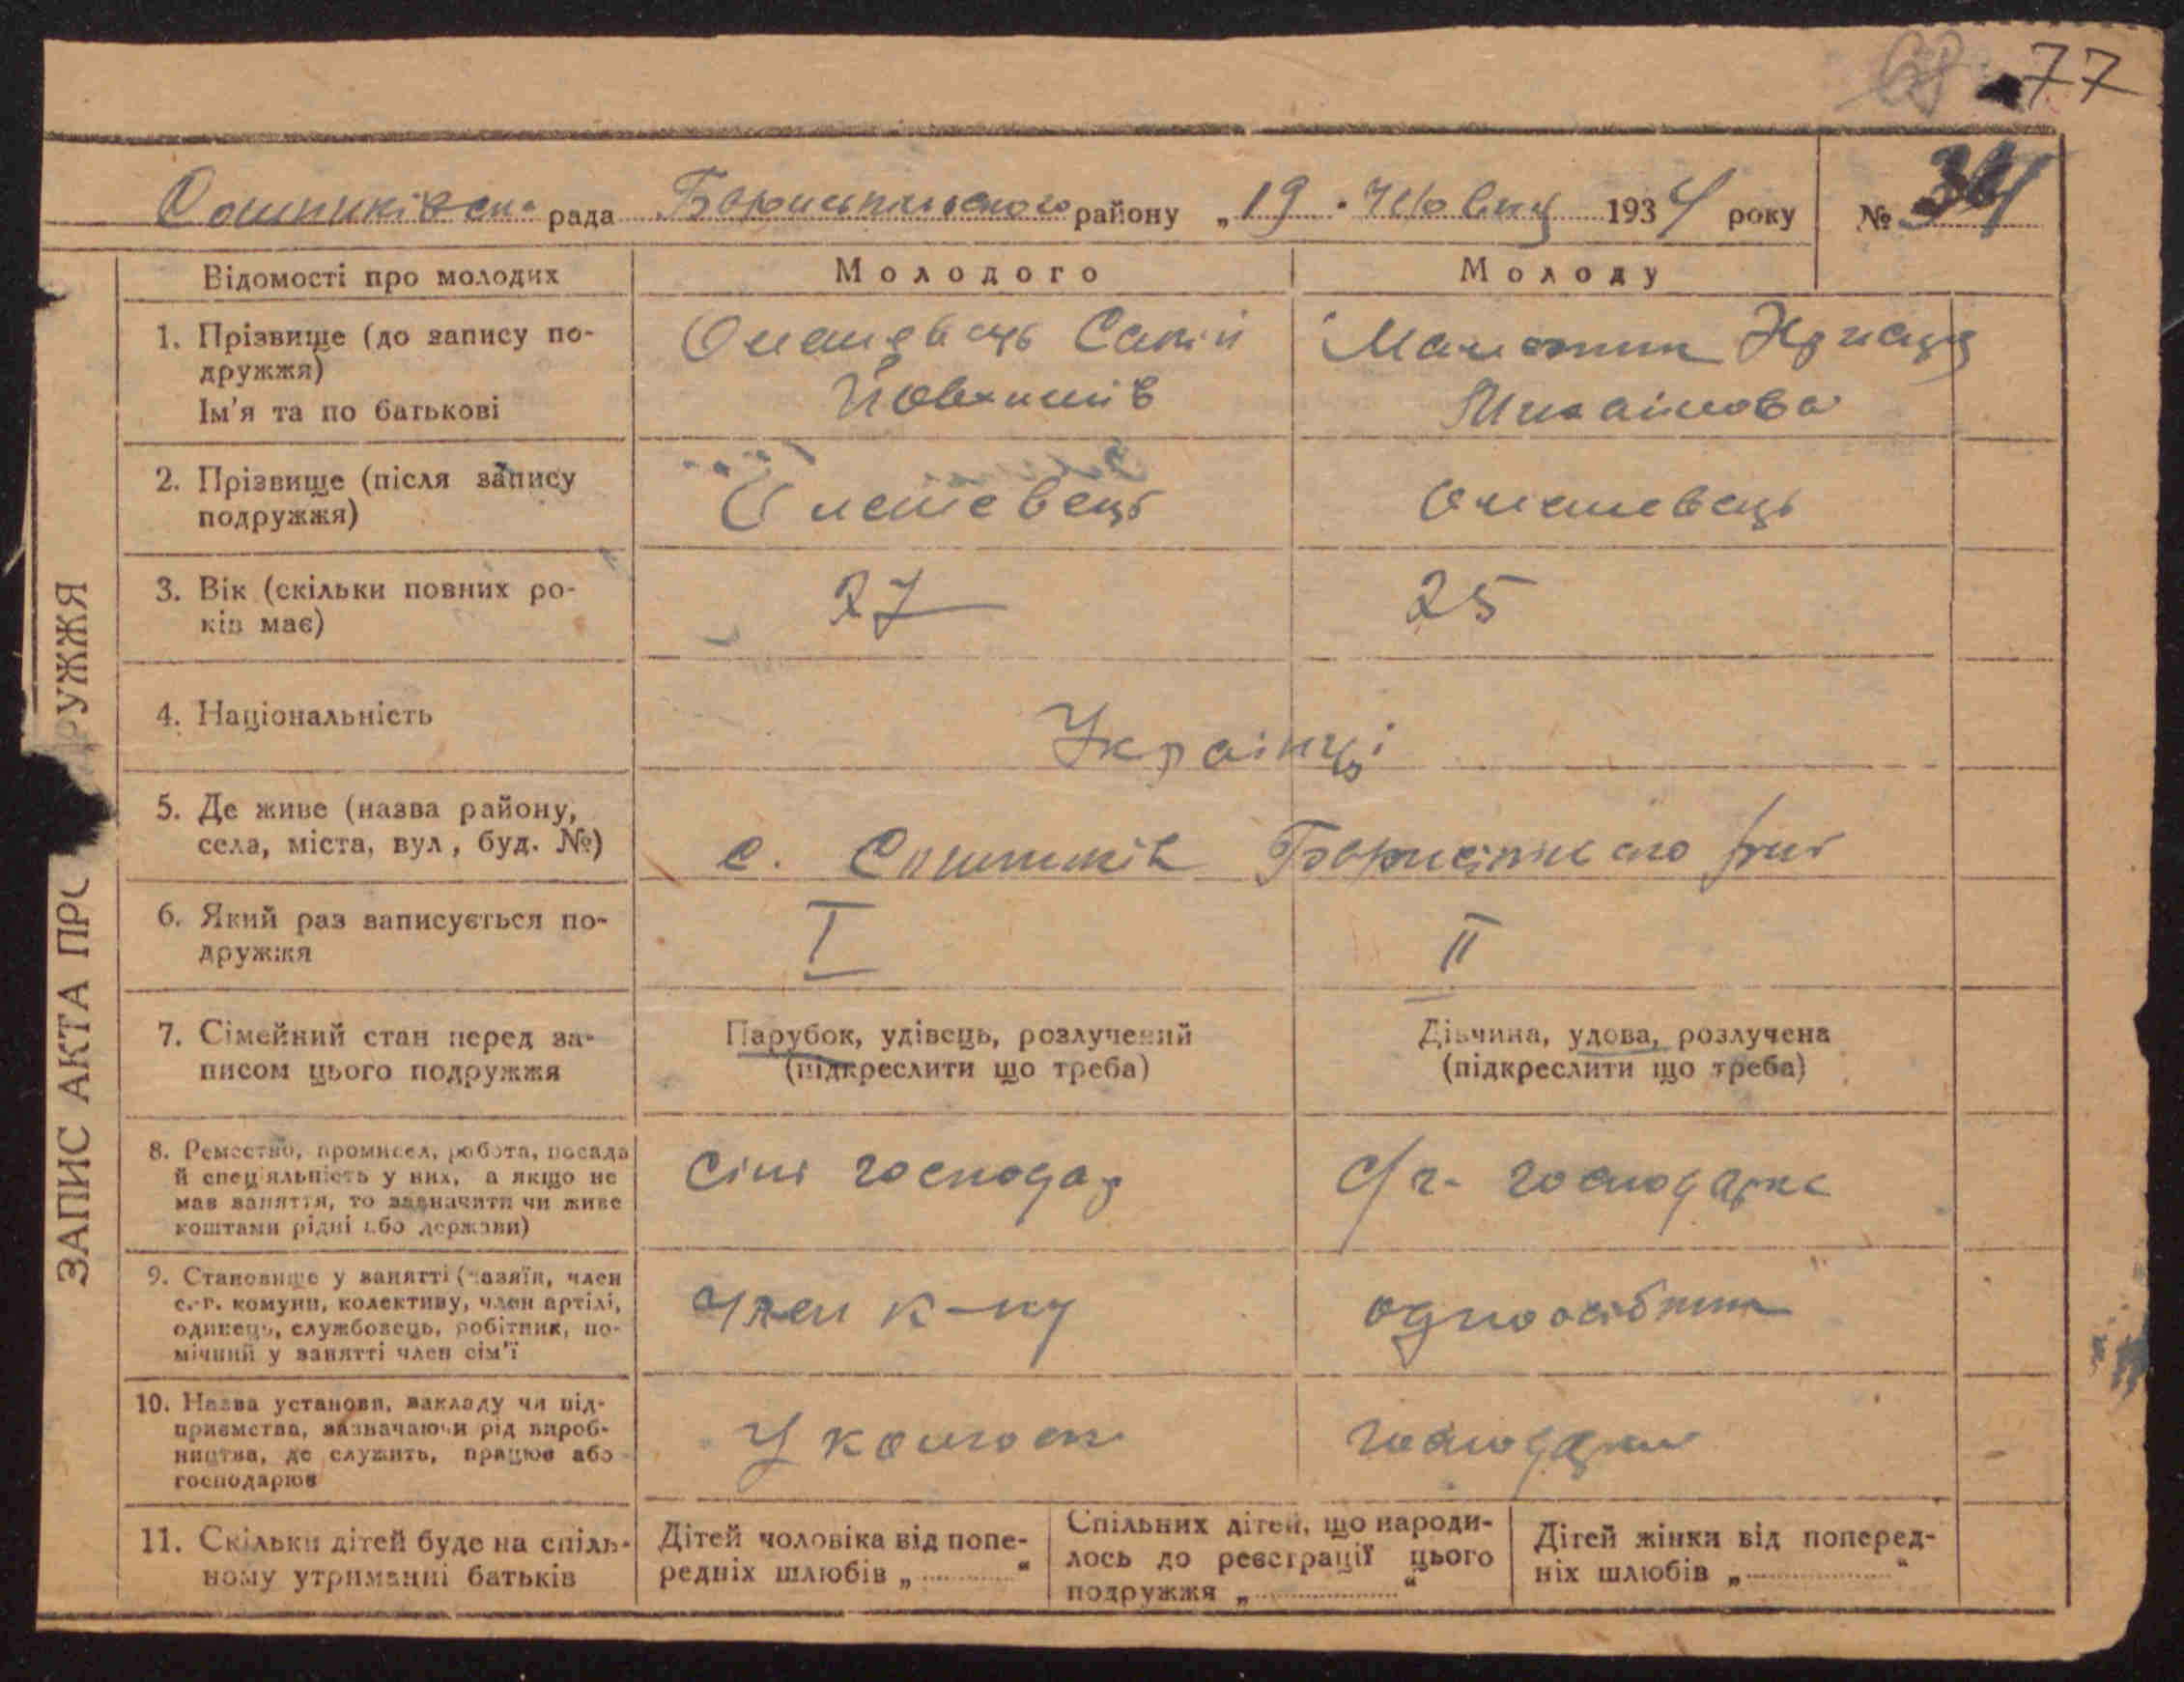 68 77
Сошниківська рада Бориспільського району „19 " жовтня 1934 року №
Відомості про молодих Молодого Молоду
1. Прізвище (до запису по-
дружжя)
Ім'я та по батькові
2. Прізвище (після запису
подружжя)
Олешевець
Олешевець
3. Вік (скільки повних ро-
ків має)
27
25
4. Національність
Українці
5. Де живе (назва району,
села, міста, вул, буд. №)
с. Сошників Бориспільського
6. Який раз записується по-
дружжя
I
II
7. Сімейний стан перед за-
писом цього подружжя
Парубок, удівець, розлучений
(підкреслити що треба)
Дівчина, удова, розлучена
(підкреслити що треба)
8. Ремество, промисел, робота, посада
й спеціяльність у них, а якщо не
має заняття, то зазначити чи живе
коштами рідні або держави)
Сіль господар
с/г. господарка
9. Становище у занятті (хазяїн, член
с.-г. комуни, колективу, член артілі,
одинець, службовець, робітник, по-
мічний у занятті член сім'ї
член к-пу
одноосібник
10. Назва установи, закладу чи під-
приємства, зазначаючи рід вироб-
ництва, де служить, працює або
господарює
У
11. Скільки дітей буде на спіль-
ному утриманні батьків
Дітей чоловіка від попе-
редніх шлюбів „ “
Спільних дітей, що народи-
лось до реєстрації цього
подружжя „ “
Дітей жінки від поперед-
ніх шлюбів „ “
ЗАПИС АКТА ПРО РУЖЖЯ